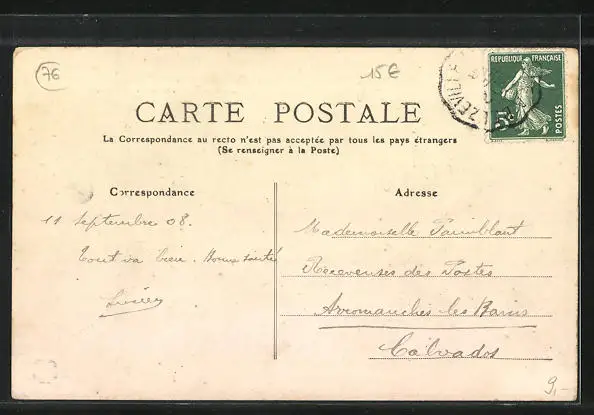 76
15€
RÉPUBLIQUE FRANÇAISE
POSTES
5c
CARTE POSTALE
La Correspondance au recto n'est pas acceptée par tous les pays étrangers
(Se renseigner à la Poste)
Correspondance
11 Septembre 08.
Tout va bien. Bonne santé
Lucien
Adresse
Mademoiselle Painblant
Receveuses des Postes
Arromanches les Bains
Calvados
9,-